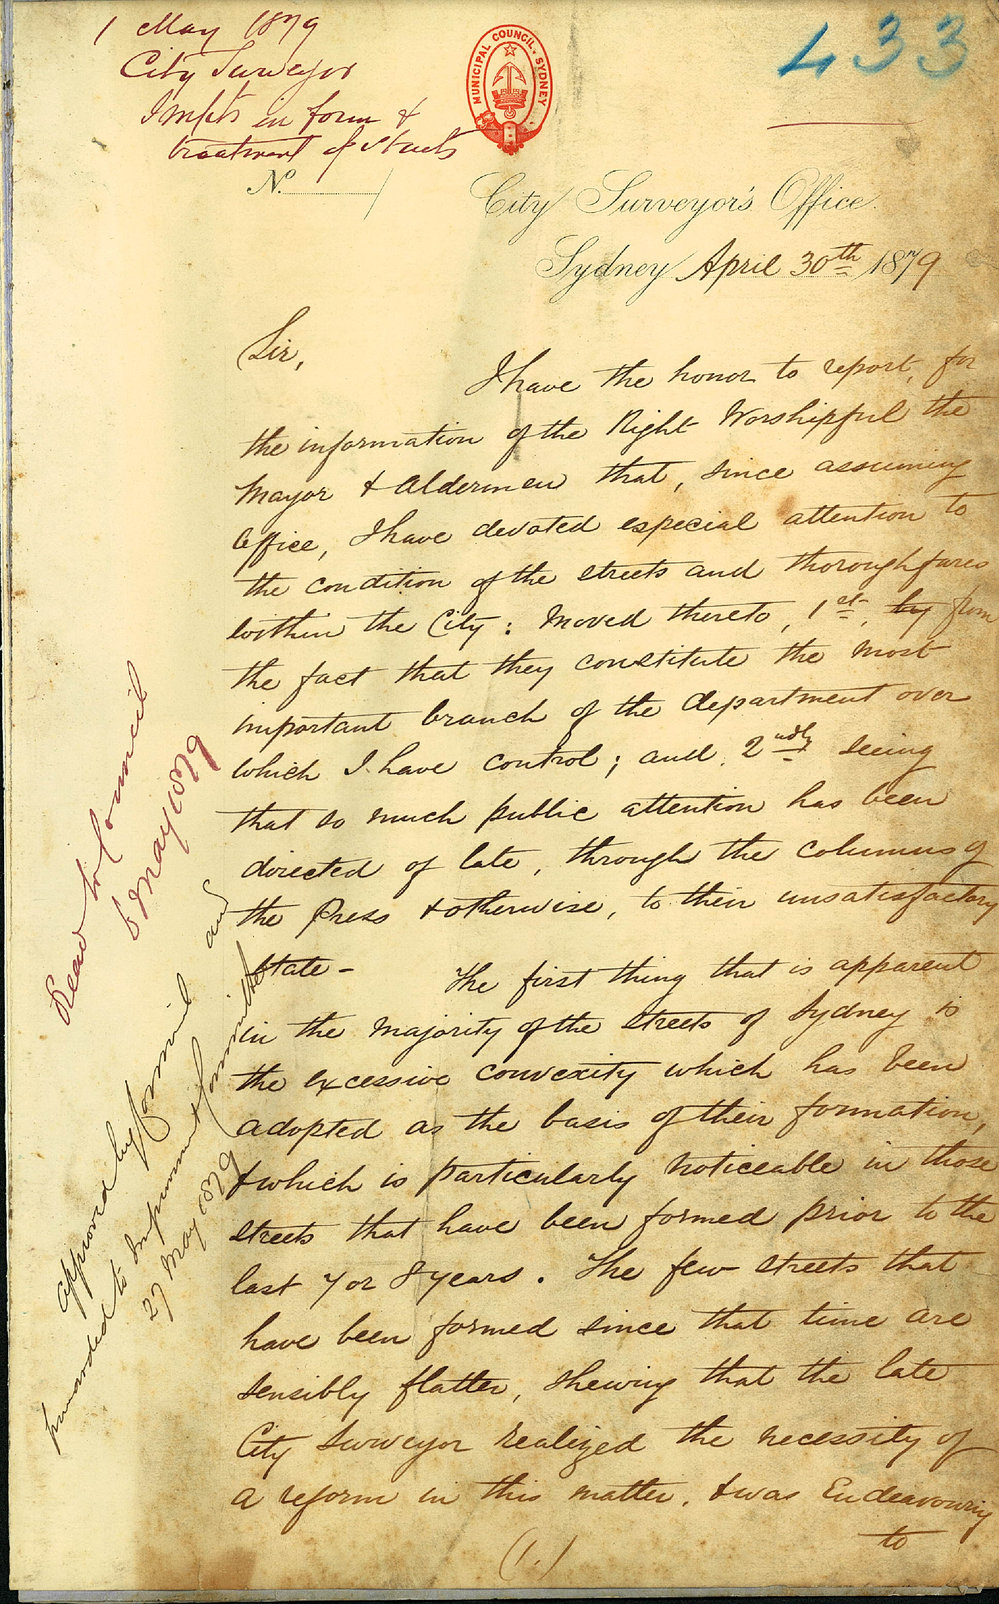 1 May 1879
City Surveyor
Impts in form &
treatment of Streets
433
MUNICIPAL COUNCIL, SYDNEY
No.
City Surveyor's Office.
Sydney April 30th 1879
Sir,
I have the honor to report, for
the information of the Right Worshipful the
Mayor & Aldermen that, since assuming
Office, I have devoted especial attention to
the condition of the streets and thoroughfares
within the City: Moved thereto, 1st, by from
the fact that they constitute the most
important branch of the department over
which I have control; and, 2ndly seeing
that so much public attention has been
directed of late, through the columns of
the Press & otherwise, to their unsatisfactory
state -
The first thing that is apparent
in the majority of the streets of Sydney is
the excessive convexity which has been
adopted as the basis of their formation,
& which is particularly noticeable in those
streets that have been formed prior to the
last 7 or 8 years. The few streets that
have been formed since that time are
sensibly flatter, shewing that the late
City Surveyor realized the necessity of
a reform in this matter, & was Endeavouring
to
(1.)
Read to Council
6 May 1879
approved by Council and
forwarded to Improvement Committee
27 May 1879